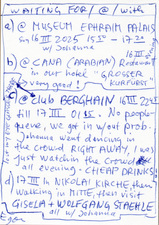 WAITING FOR / @ / with
a) @ MUSEUM EPHRAIM PALAIS
16 III 2025 15 — 17
w/ Johanna
b) @ CANA (ARABIAN) Restaurant
in our hotel "GROSSER
very good! KURFÜRST"
c) @ Club BERGHAIN 16 III 22
till 17 III 01. No people
queue, we got in w/our prob.
Johanna went dancing in
the crowd RIGHT AWAY, I was
just watchin the crowd
all evening. CHEAP DRINKS
d) 17 III in NIKOLAI KIRCHE then
walking in MITTE, then visit
GISELA + WOLFGANG STAEHLE
all w/ Johanna